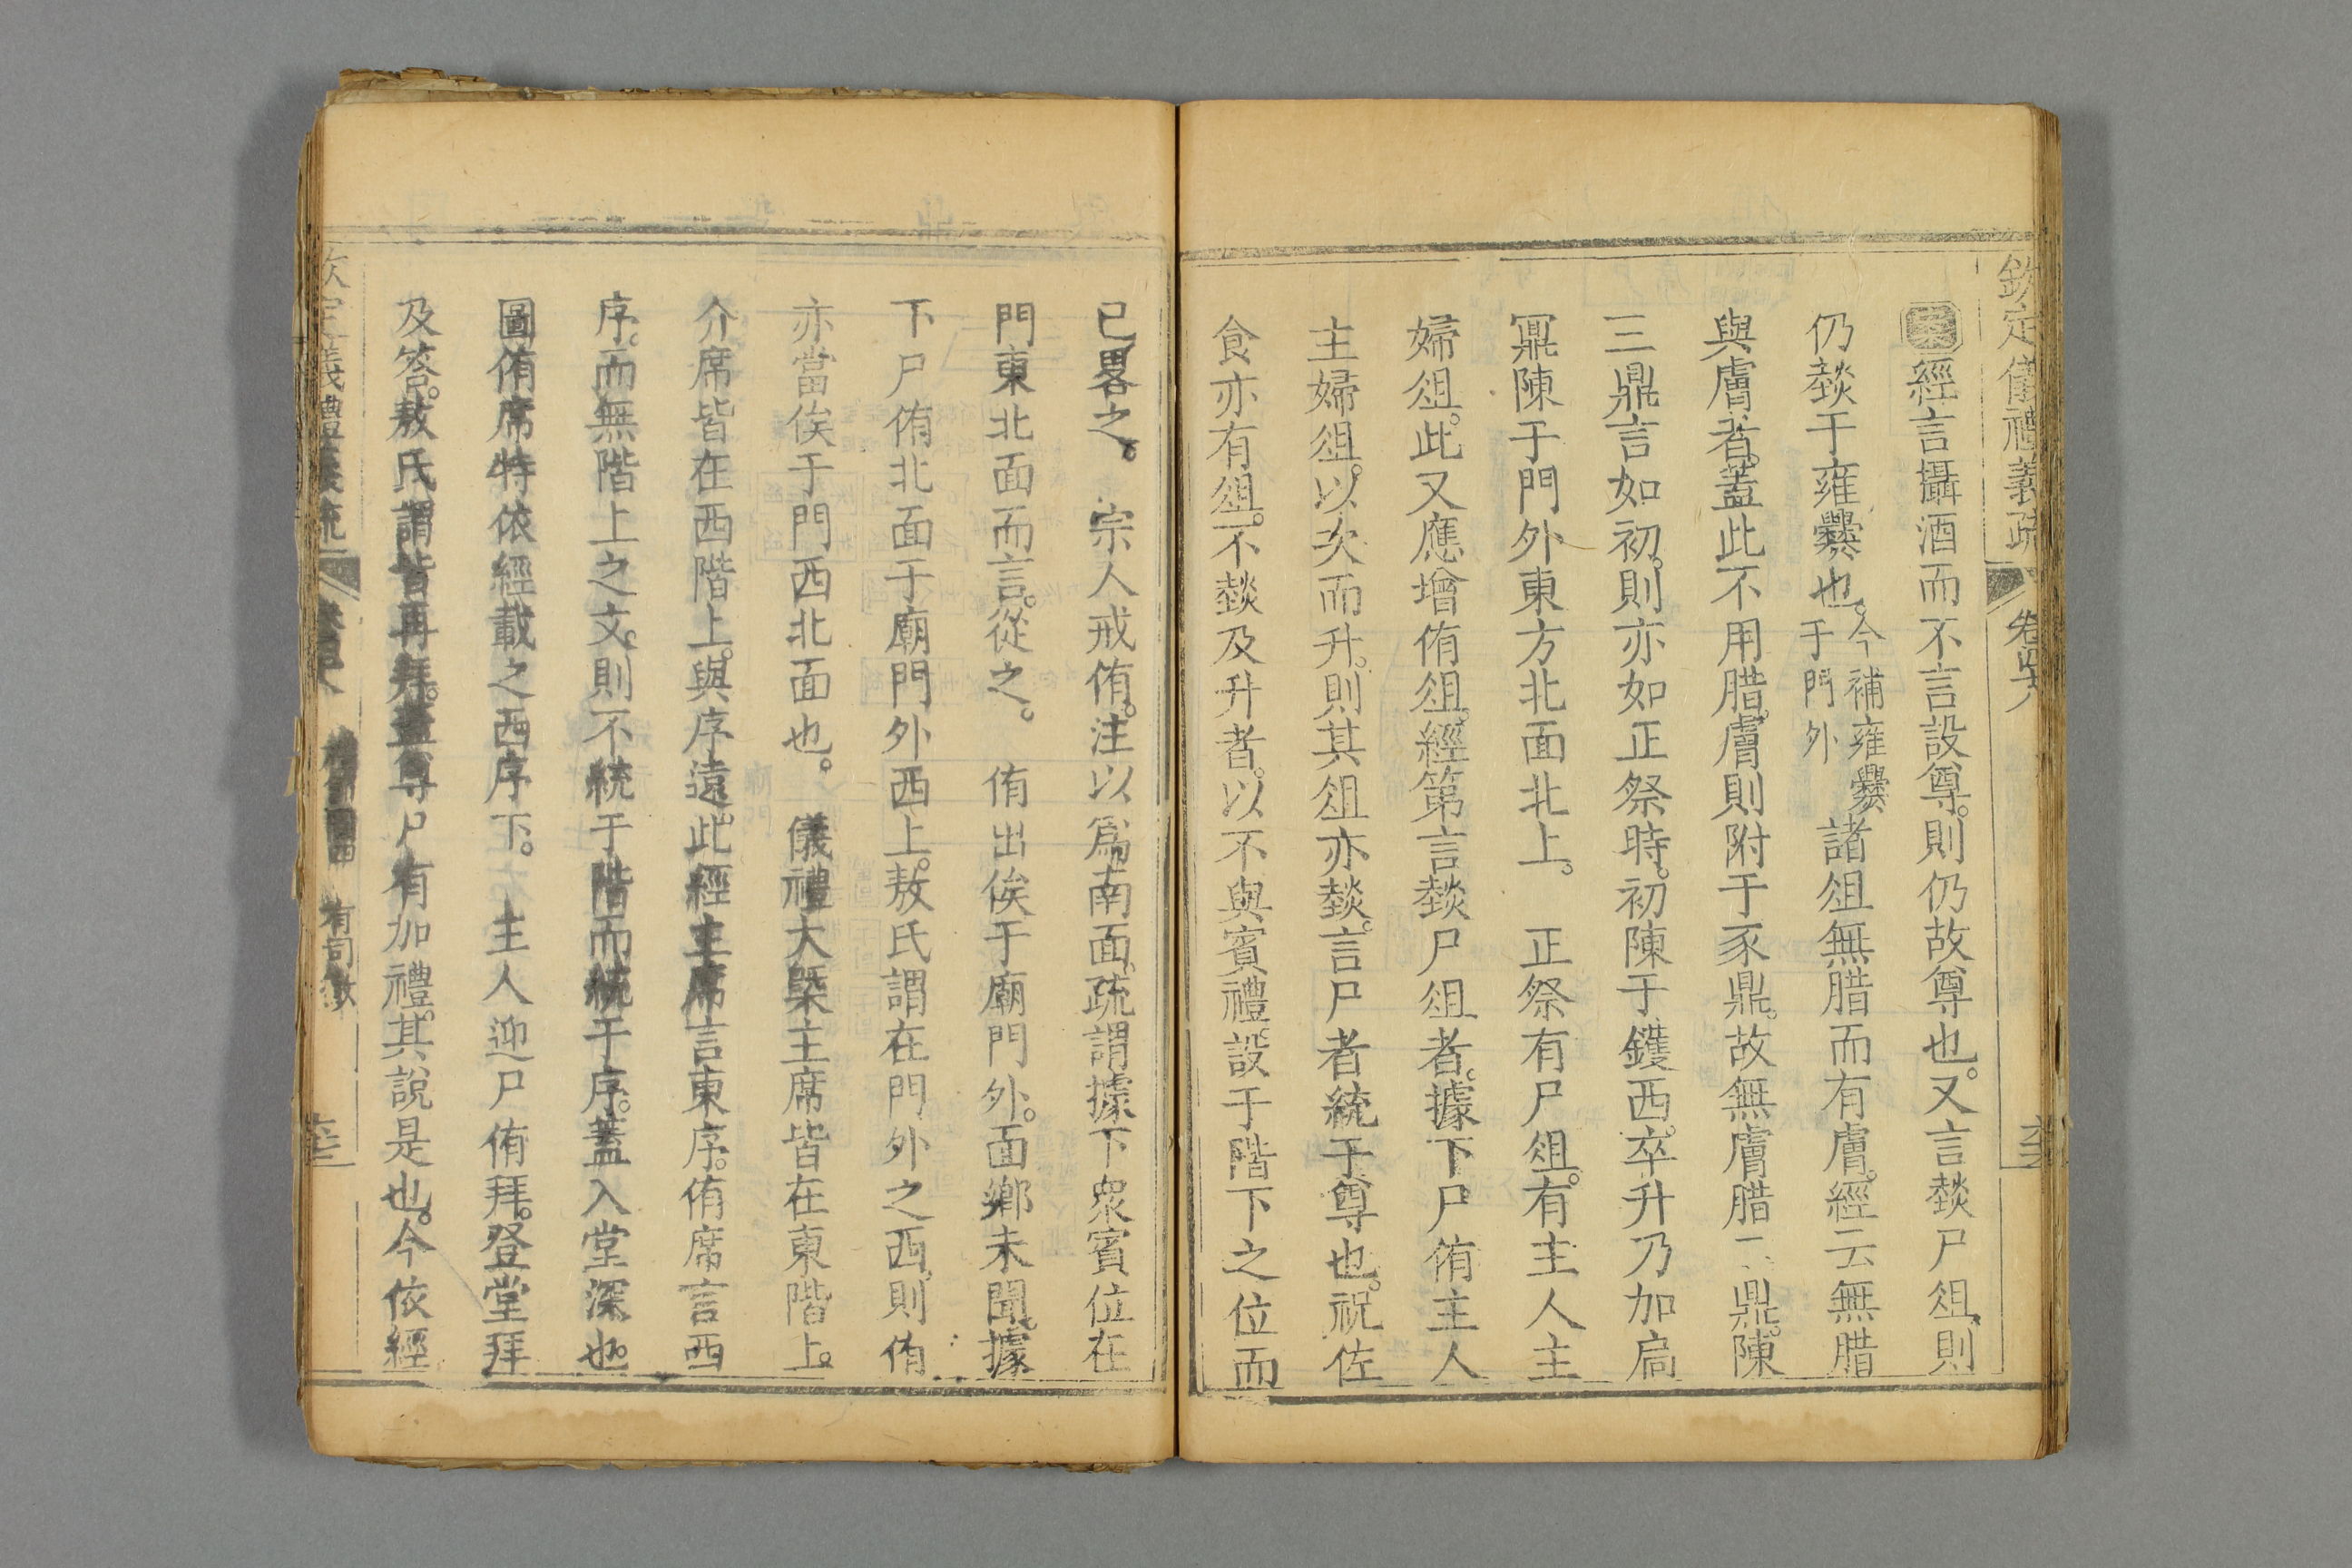 欽定儀禮義疏 卷四十八
案經言攝酒而不言設尊。則仍故尊也。又言燅尸俎。則
仍燅于雍爨也。今補雍爨于門外諸俎無腊而有膚。經云無腊
與膚者。蓋此不用腊。膚則附于豕鼎。故無膚腊二鼎。陳
三鼎言如初。則亦如正祭時。初陳于鑊西。卒升乃加扃
鼏陳于門外東方北面北上。 正祭有尸俎。有主人主
婦俎。此又應增侑俎。經第言燅尸俎者。據下尸侑主人
主婦俎。以次而升。則其俎亦燅。言尸者統于尊也。祝佐
食亦有俎。不燅及升者。以不與賓禮。設于階下之位而
已畧之。 宗人戒侑。注以爲南面。疏謂據下衆賓位在
門東北面而言。從之。 侑出俟于廟門外。面鄉未聞。據
下尸侑北面于廟門外西上。敖氏謂在門外之西。則侑
亦當俟于門西北面也。 儀禮大槩主席皆在東階上。
介席皆在西階上。與序遠。此經主席言東序。侑席言西
序。而無階上之文。則不統于階而統于序。蓋入堂深也。
圖侑席特依經載之西序下。 主人迎尸侑拜。登堂拜
及答。敖氏謂皆再拜。蓋尊尸有加禮。其說是也。今依經
儀禮義疏 有司徹